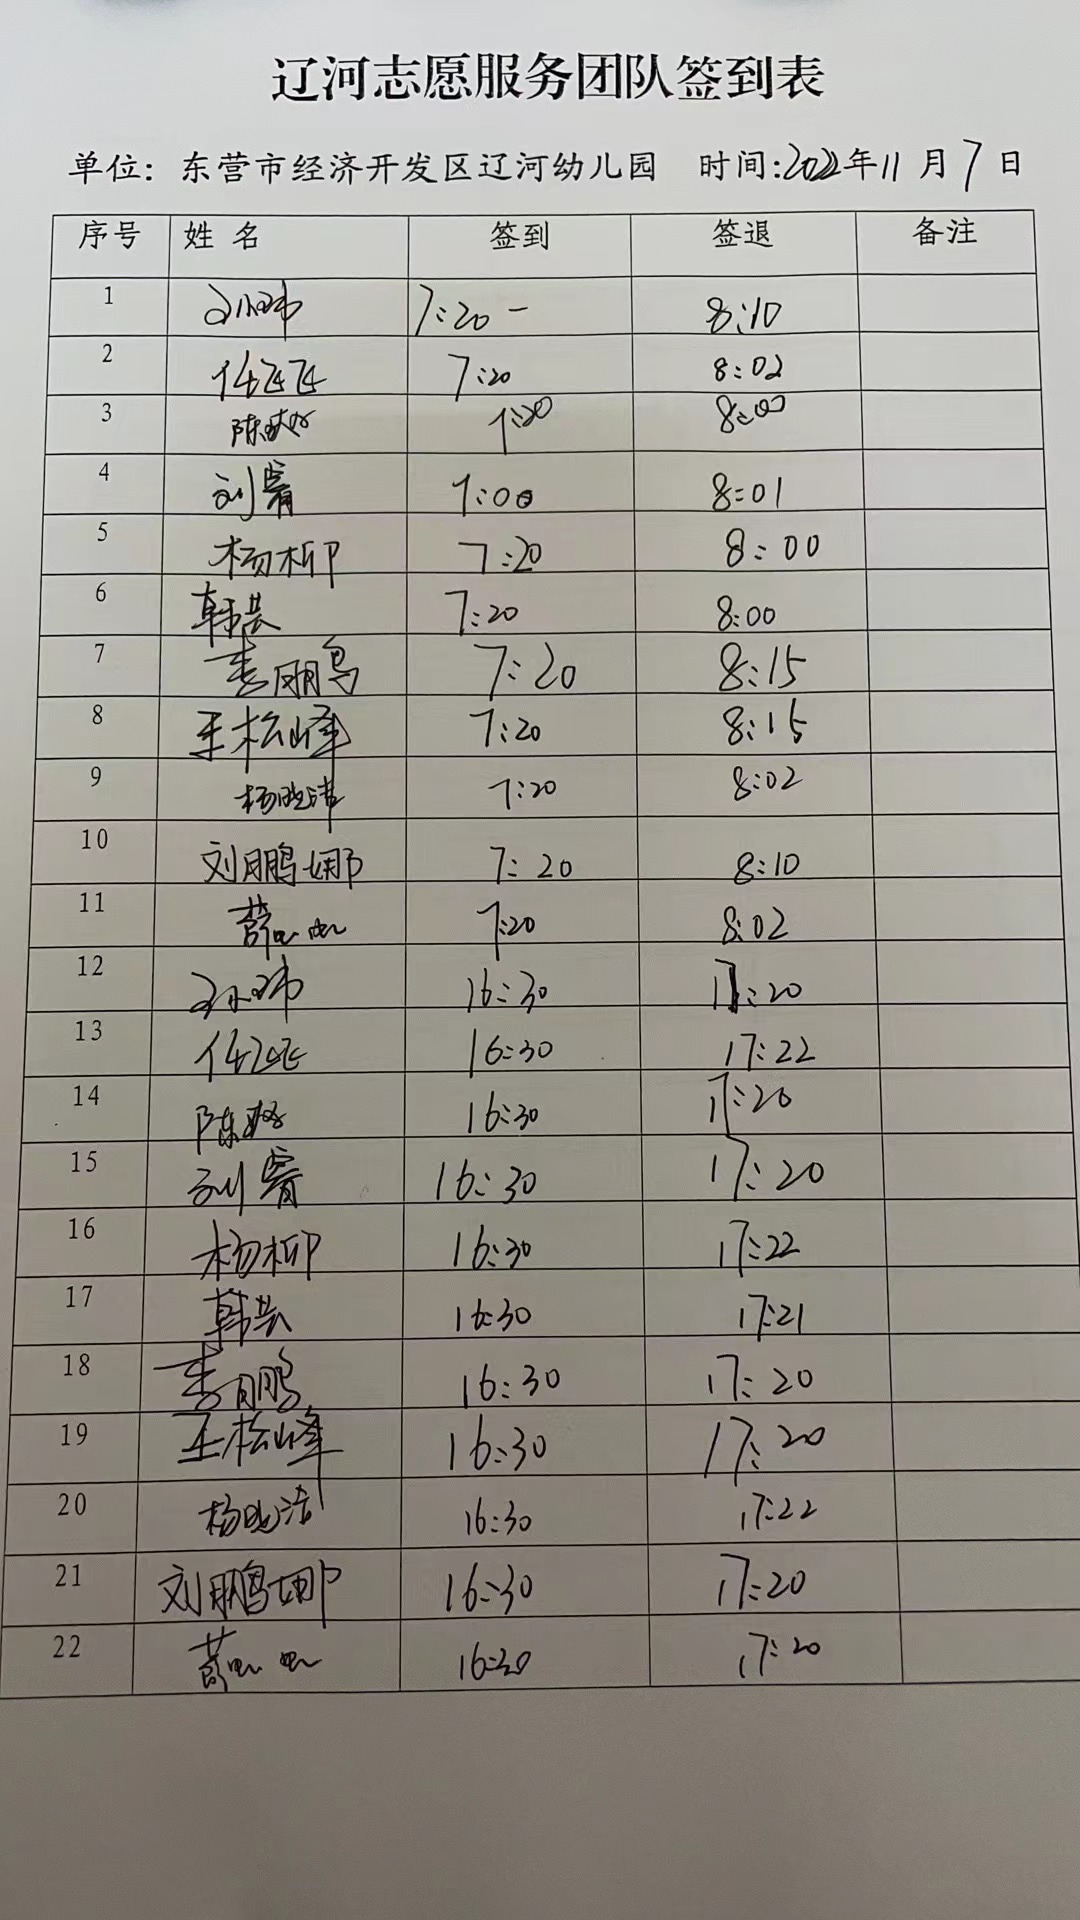 辽河志愿服务团队签到表
单位：东营市经济开发区辽河幼儿园 时间:2022年11月7日
序号 姓名 签到 签退 备注
1 7:20- 8:10
2 任飞飞 7:20 8:02
3 陈 7:20 8:00
4 刘霄 7:00 8:01
5 杨柳 7:20 8:00
6 韩芸 7:20 8:00
7 李鹏 7:20 8:15
8 王松峰 7:20 8:15
9 杨晓洁 7:20 8:02
10 刘鹏娜 7:20 8:10
11 薛 7:20 8:02
12 16:30 17:20
13 任飞飞 16:30 17:22
14 陈 16:30 17:20
15 刘霄 16:30 17:20
16 杨柳 16:30 17:22
17 韩芸 16:30 17:21
18 李鹏 16:30 17:20
19 王松峰 16:30 17:20
20 杨晓洁 16:30 17:22
21 刘鹏娜 16:30 17:20
22 薛 16:30 17:20